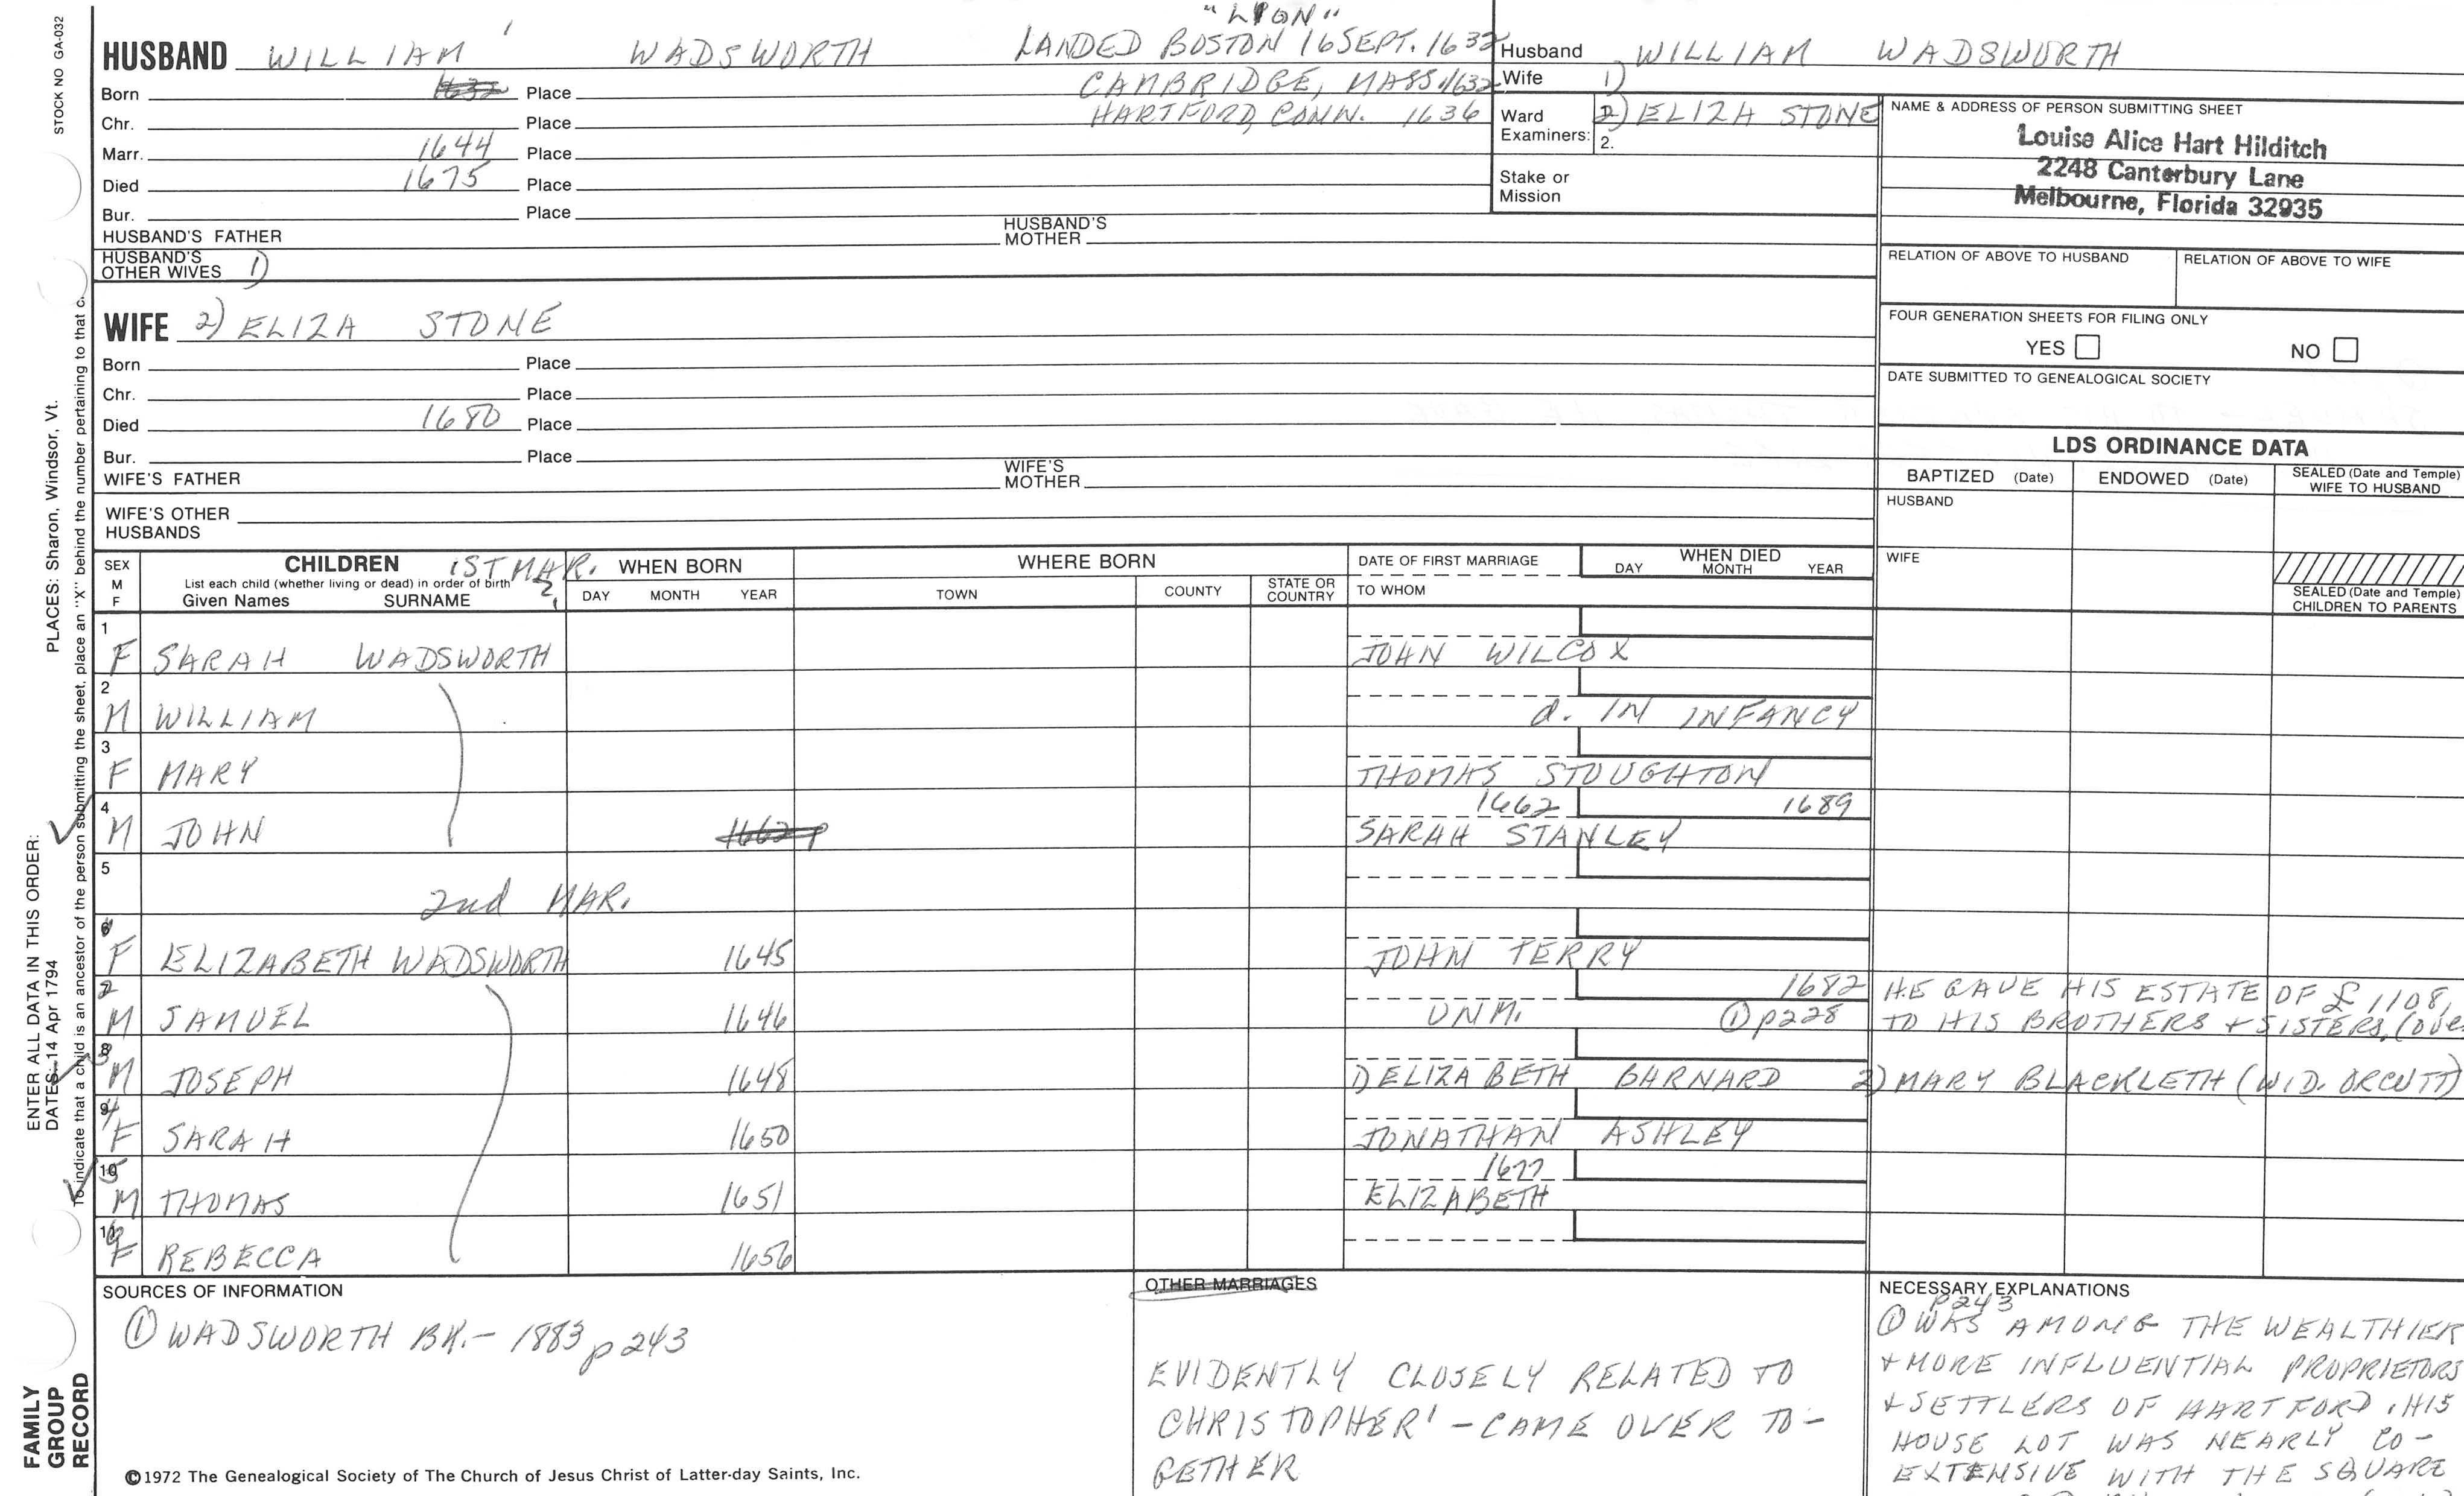 STOCK NO GA-032
"LION"
HUSBAND WILLIAM ' WADSWORTH LANDED BOSTON 16 SEPT. 1632
Born 1632 Place CAMBRIDGE, MASS 1632
Chr. Place HARTFORD, CONN. 1636
Marr. 1644 Place
Died 1675 Place
Bur. Place
HUSBAND'S FATHER HUSBAND'S MOTHER
HUSBAND'S OTHER WIVES 1)
Husband WILLIAM WADSWORTH
Wife 1)
Ward Examiners: 2) ELIZA STONE
2.
Stake or Mission
NAME & ADDRESS OF PERSON SUBMITTING SHEET
Louise Alice Hart Hilditch
2248 Canterbury Lane
Melbourne, Florida 32935
RELATION OF ABOVE TO HUSBAND RELATION OF ABOVE TO WIFE
FOUR GENERATION SHEETS FOR FILING ONLY
YES NO
DATE SUBMITTED TO GENEALOGICAL SOCIETY
WIFE 2) ELIZA STONE
Born Place
Chr. Place
Died 1680 Place
Bur. Place
WIFE'S FATHER WIFE'S MOTHER
WIFE'S OTHER HUSBANDS
LDS ORDINANCE DATA
BAPTIZED (Date) ENDOWED (Date) SEALED (Date and Temple) WIFE TO HUSBAND
HUSBAND
WIFE
SEALED (Date and Temple) CHILDREN TO PARENTS
SEX M F
CHILDREN 1ST MAR.
List each child (whether living or dead) in order of birth
Given Names SURNAME
WHEN BORN
DAY MONTH YEAR
WHERE BORN
TOWN COUNTY STATE OR COUNTRY
DATE OF FIRST MARRIAGE
TO WHOM
WHEN DIED
DAY MONTH YEAR
1 F SARAH WADSWORTH JOHN WILCOX
2 M WILLIAM d. IN INFANCY
3 F MARY THOMAS STOUGHTON
4 1662 1689
M JOHN 1662 SARAH STANLEY
5
2nd MAR.
F ELIZABETH WADSWORTH 1645 JOHN TERRY
2 1682 HE GAVE HIS ESTATE OF £ 1108,
M SAMUEL 1646 UNM. ① p228 TO HIS BROTHERS + SISTERS, (over
3 M JOSEPH 1648 1) ELIZABETH BARNARD 2) MARY BLACKLETH (WID. ORCUTT)
4 F SARAH 1650 JONATHAN ASHLEY
5 1677
M THOMAS 1651 ELIZABETH
6 F REBECCA 1656
SOURCES OF INFORMATION
① WADSWORTH BK. - 1883 p243
©1972 The Genealogical Society of The Church of Jesus Christ of Latter-day Saints, Inc.
OTHER MARRIAGES
EVIDENTLY CLOSELY RELATED TO
CHRISTOPHER' - CAME OVER TO-
GETHER
NECESSARY EXPLANATIONS
p243
① WAS AMONG THE WEALTHIER
+ MORE INFLUENTIAL PROPRIETORS
+ SETTLERS OF HARTFORD, HIS
HOUSE LOT WAS NEARLY CO-
EXTENSIVE WITH THE SQUARE
PLACES: Sharon, Windsor, Vt.
ENTER ALL DATA IN THIS ORDER:
DATES: 14 Apr 1794
To indicate that a child is an ancestor of the person submitting the sheet, place an "X" behind the number pertaining to that c
FAMILY
GROUP
RECORD